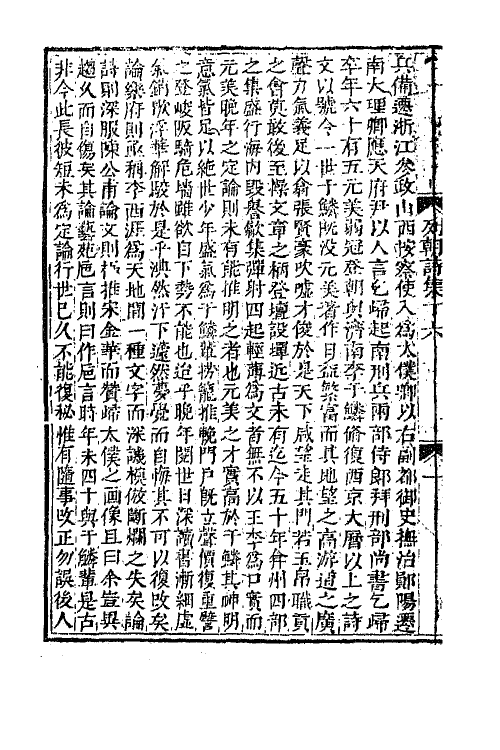 兵備遷浙江參政山西按察使入為太僕卿以右副都御史撫治鄖陽遷
南大理卿應天府尹以人言乞歸起南刑兵兩部侍郎拜刑部尚書乞歸
卒年六十有五元美弱冠登朝與濟南李于鱗脩復西京大曆以上之詩
文以號令一世于鱗既没元美著作日益繁富而其地望之高游道之廣
聲力氣義足以翕張賢豪吹噓才俊於是天下咸望走其門若玉帛職貢
之會莫敢後至操文章之柄登壇設墠近古未有迄今五十年弇州四部
之集盛行海内毀譽歙集彈射四起輕薄為文者無不以王李為口實而
元美晚年之定論則未有能推明之者也元美之才實高於于鱗其神明
意氣皆足以絶世少年盛氣為于鱗輩撈籠推輓門戶既立聲價復重譬
之登峻阪騎危墻雖欲自下勢不能也迨乎晚年閱世日深讀書漸細虛
氣銷歇浮華解駮於是乎淟然汗下蘧然夢覺而自悔其不可以復改矣
論樂府則亟稱李西涯為天地間一種文字而深譏模倣斷爛之失矣論
詩則深服陳公甫論文則極推宋金華而贊歸太僕之画像且曰余豈異
趨久而自傷矣其論藝苑卮言則曰作卮言時年未四十與于鱗輩是古
非今此長彼短未為定論行世已久不能復秘惟有隨事改正勿誤後人
列朝詩集丁六